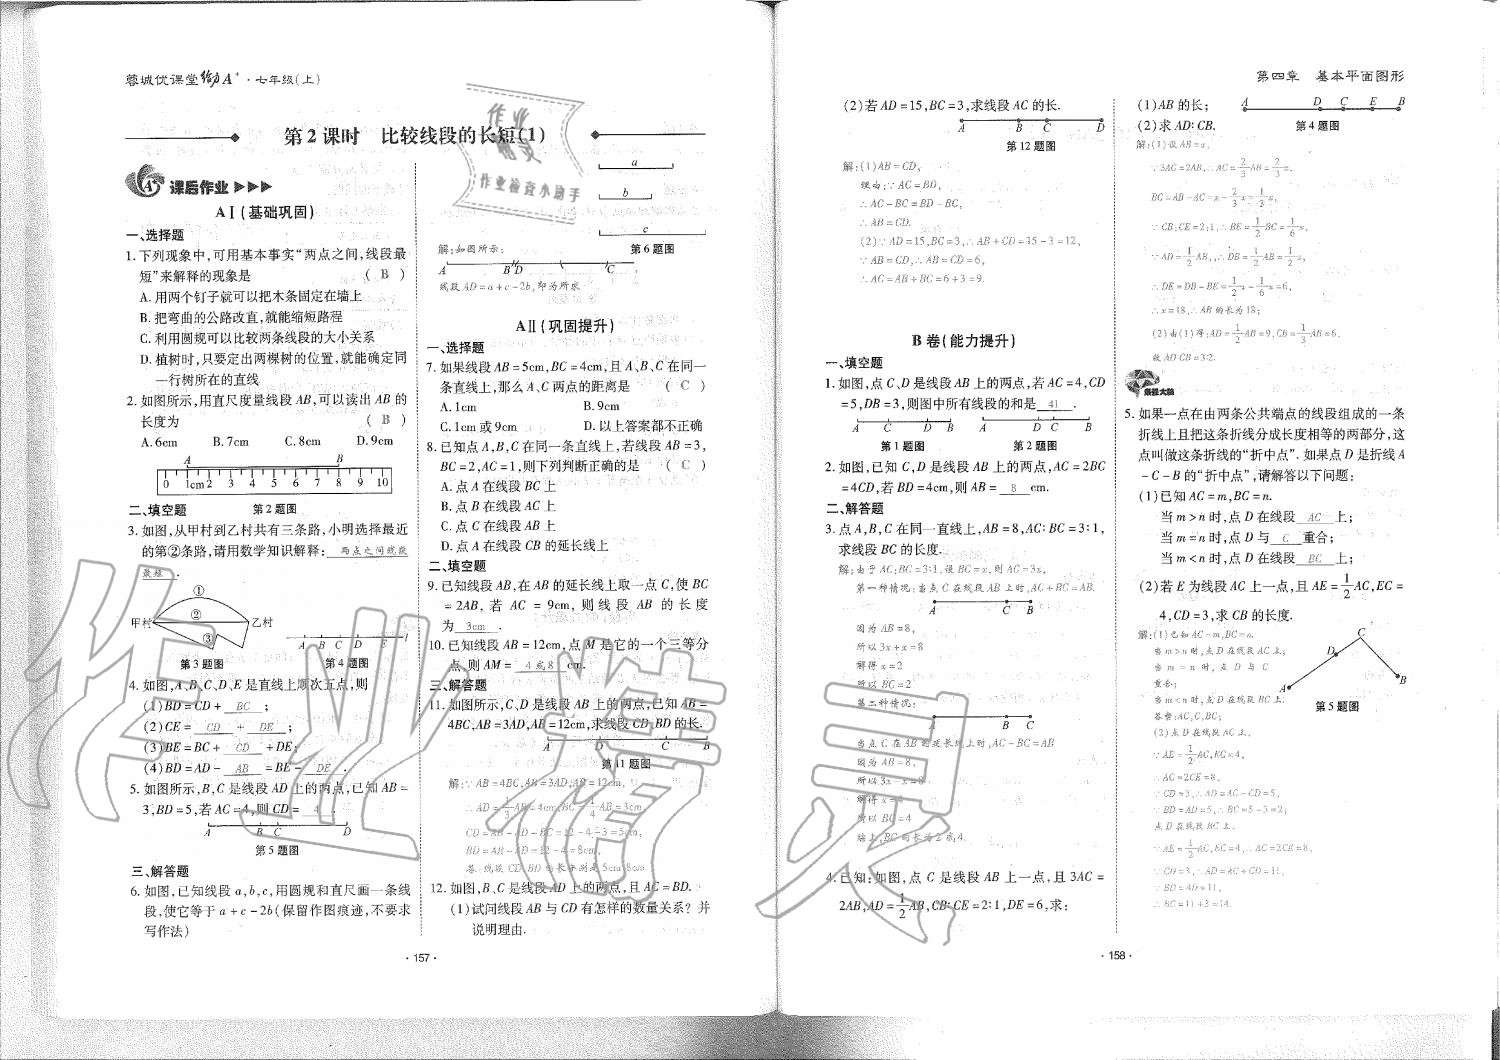 蓉城优课堂 A⁺·七年级(上)
第2课时 比较线段的长短(1)
课后作业▶▶▶
AⅠ(基础巩固)
一、选择题
1. 下列现象中,可用基本事实“两点之间,线段最
短”来解释的现象是 ( B )
A. 用两个钉子就可以把木条固定在墙上
B. 把弯曲的公路改直,就能缩短路程
C. 利用圆规可以比较两条线段的大小关系
D. 植树时,只要定出两棵树的位置,就能确定同
一行树所在的直线
2. 如图所示,用直尺度量线段 AB,可以读出 AB 的
长度为 ( B )
A. 6cm B. 7cm C. 8cm D. 9cm
A B
0 1cm 2 3 4 5 6 7 8 9 10
第2题图
二、填空题
3. 如图,从甲村到乙村共有三条路,小明选择最近
的第②条路,请用数学知识解释: 两点之间线段
最短 .
甲村 ① ② ③ 乙村
A B C D E l
第3题图 第4题图
4. 如图,A、B、C、D、E 是直线上顺次五点,则
(1)BD=CD+ BC ;
(2)CE= CD + DE ;
(3)BE=BC+ CD +DE;
(4)BD=AD- AB =BE- DE .
5. 如图所示,B、C 是线段 AD 上的两点,已知 AB=
3,BD=5,若 AC=4,则 CD= 4 .
A B C D
第5题图
三、解答题
6. 如图,已知线段 a,b,c,用圆规和直尺画一条线
段,使它等于 a+c-2b(保留作图痕迹,不要求
写作法)
a
b
c
第6题图
解:如图所示:
A B'D C
线段AD=a+c-2b,即为所求
AⅡ(巩固提升)
一、选择题
7. 如果线段 AB=5cm,BC=4cm,且 A、B、C 在同一
条直线上,那么 A、C 两点的距离是 ( C )
A. 1cm B. 9cm
C. 1cm 或 9cm D. 以上答案都不正确
8. 已知点 A、B、C 在同一条直线上,若线段 AB=3,
BC=2,AC=1,则下列判断正确的是 ( C )
A. 点 A 在线段 BC 上
B. 点 B 在线段 AC 上
C. 点 C 在线段 AB 上
D. 点 A 在线段 CB 的延长线上
二、填空题
9. 已知线段 AB,在 AB 的延长线上取一点 C,使 BC
=2AB,若 AC=9cm,则线段 AB 的长度
为 3cm .
10. 已知线段 AB=12cm,点 M 是它的一个三等分
点,则 AM= 4或8 cm.
三、解答题
11. 如图所示,C、D 是线段 AB 上的两点,已知 AB=
4BC,AB=3AD,AB=12cm,求线段 CD、BD 的长.
A D C B
第11题图
解:∵AB=4BC,AB=3AD,AB=12cm,
∴AD=1/3AB=4cm,BC=1/4AB=3cm
CD=AB-AD-BC=12-4-3=5cm,
BD=AB-AD=12-4=8cm,
答:线段CD、BD的长分别是5cm、8cm.
12. 如图,B、C 是线段 AD 上的两点,且 AC=BD.
(1)试问线段 AB 与 CD 有怎样的数量关系?并
说明理由.
·157·
第四章 基本平面图形
(2)若 AD=15,BC=3,求线段 AC 的长.
A B C D
第12题图
解:(1)AB=CD,
理由:∵AC=BD,
∴AC-BC=BD-BC,
∴AB=CD.
(2)∵AD=15,BC=3,∴AB+CD=15-3=12,
∵AB=CD,∴AB=CD=6,
∴AC=AB+BC=6+3=9.
B卷(能力提升)
一、填空题
1. 如图,点 C、D 是线段 AB 上的两点,若 AC=4,CD
=5,DB=3,则图中所有线段的和是 41 .
A C D B A D C B
第1题图 第2题图
2. 如图,已知 C、D 是线段 AB 上的两点,AC=2BC
=4CD,若 BD=4cm,则 AB= 8 cm.
二、解答题
3. 点 A、B、C 在同一直线上,AB=8,AC:BC=3:1,
求线段 BC 的长度.
解:由于AC:BC=3:1,设BC=x,则AC=3x,
第一种情况:当点C在线段AB上时,AC+BC=AB.
A C B
因为AB=8,
所以3x+x=8
解得x=2
所以BC=2
第二种情况:
A B C
当点C在AB的延长线上时,AC-BC=AB
因为AB=8,
所以3x-x=8
解得x=4
所以BC=4
综上,BC的长为2或4.
4. 已知:如图,点 C 是线段 AB 上一点,且 3AC=
2AB,AD=1/2AB,CB:CE=2:1,DE=6,求:
(1)AB 的长; A D C E B
(2)求 AD:CB. 第4题图
解:(1)设AB=x,
∵3AC=2AB,∴AC=2/3AB=2/3x,
BC=AB-AC=x-2/3x=1/3x,
∵CB:CE=2:1,∴BE=1/2BC=1/6x,
∵AD=1/2AB,∴DB=1/2AB=1/2x,
∴DE=DB-BE=1/2x-1/6x=6,
∴x=18,∴AB的长为18;
(2)由(1)得:AD=1/2AB=9,CB=1/3AB=6,
故AD:CB=3:2.
5. 如果一点在由两条公共端点的线段组成的一条
折线上且把这条折线分成长度相等的两部分,这
点叫做这条折线的“折中点”.如果点 D 是折线 A
-C-B 的“折中点”,请解答以下问题:
(1)已知 AC=m,BC=n.
当 m>n 时,点 D 在线段 AC 上;
当 m=n 时,点 D 与 C 重合;
当 m<n 时,点 D 在线段 BC 上;
(2)若 E 为线段 AC 上一点,且 AE=1/2AC,EC=
4,CD=3,求 CB 的长度.
C D A B
第5题图
解:(1)已知AC=m,BC=n.
当m>n时,点D在线段AC上;
当m=n时,点D与C
重合;
当m<n时,点D在线段BC上.
答案:AC,C,BC;
(2)点D在线段AC上,
∵AE=1/2AC,EC=4,
∴AC=2CE=8,
∵CD=3,∴AD=AC-CD=5,
∵BD=AD=5,∴BC=5-3=2;
点D在线段BC上,
∵AE=1/2AC,EC=4,∴AC=2CE=8,
∵CD=3,∴AD=AC+CD=11,
∵BD=AD=11,
∴BC=11+3=14.
·158·
作业精灵
作业检查小助手